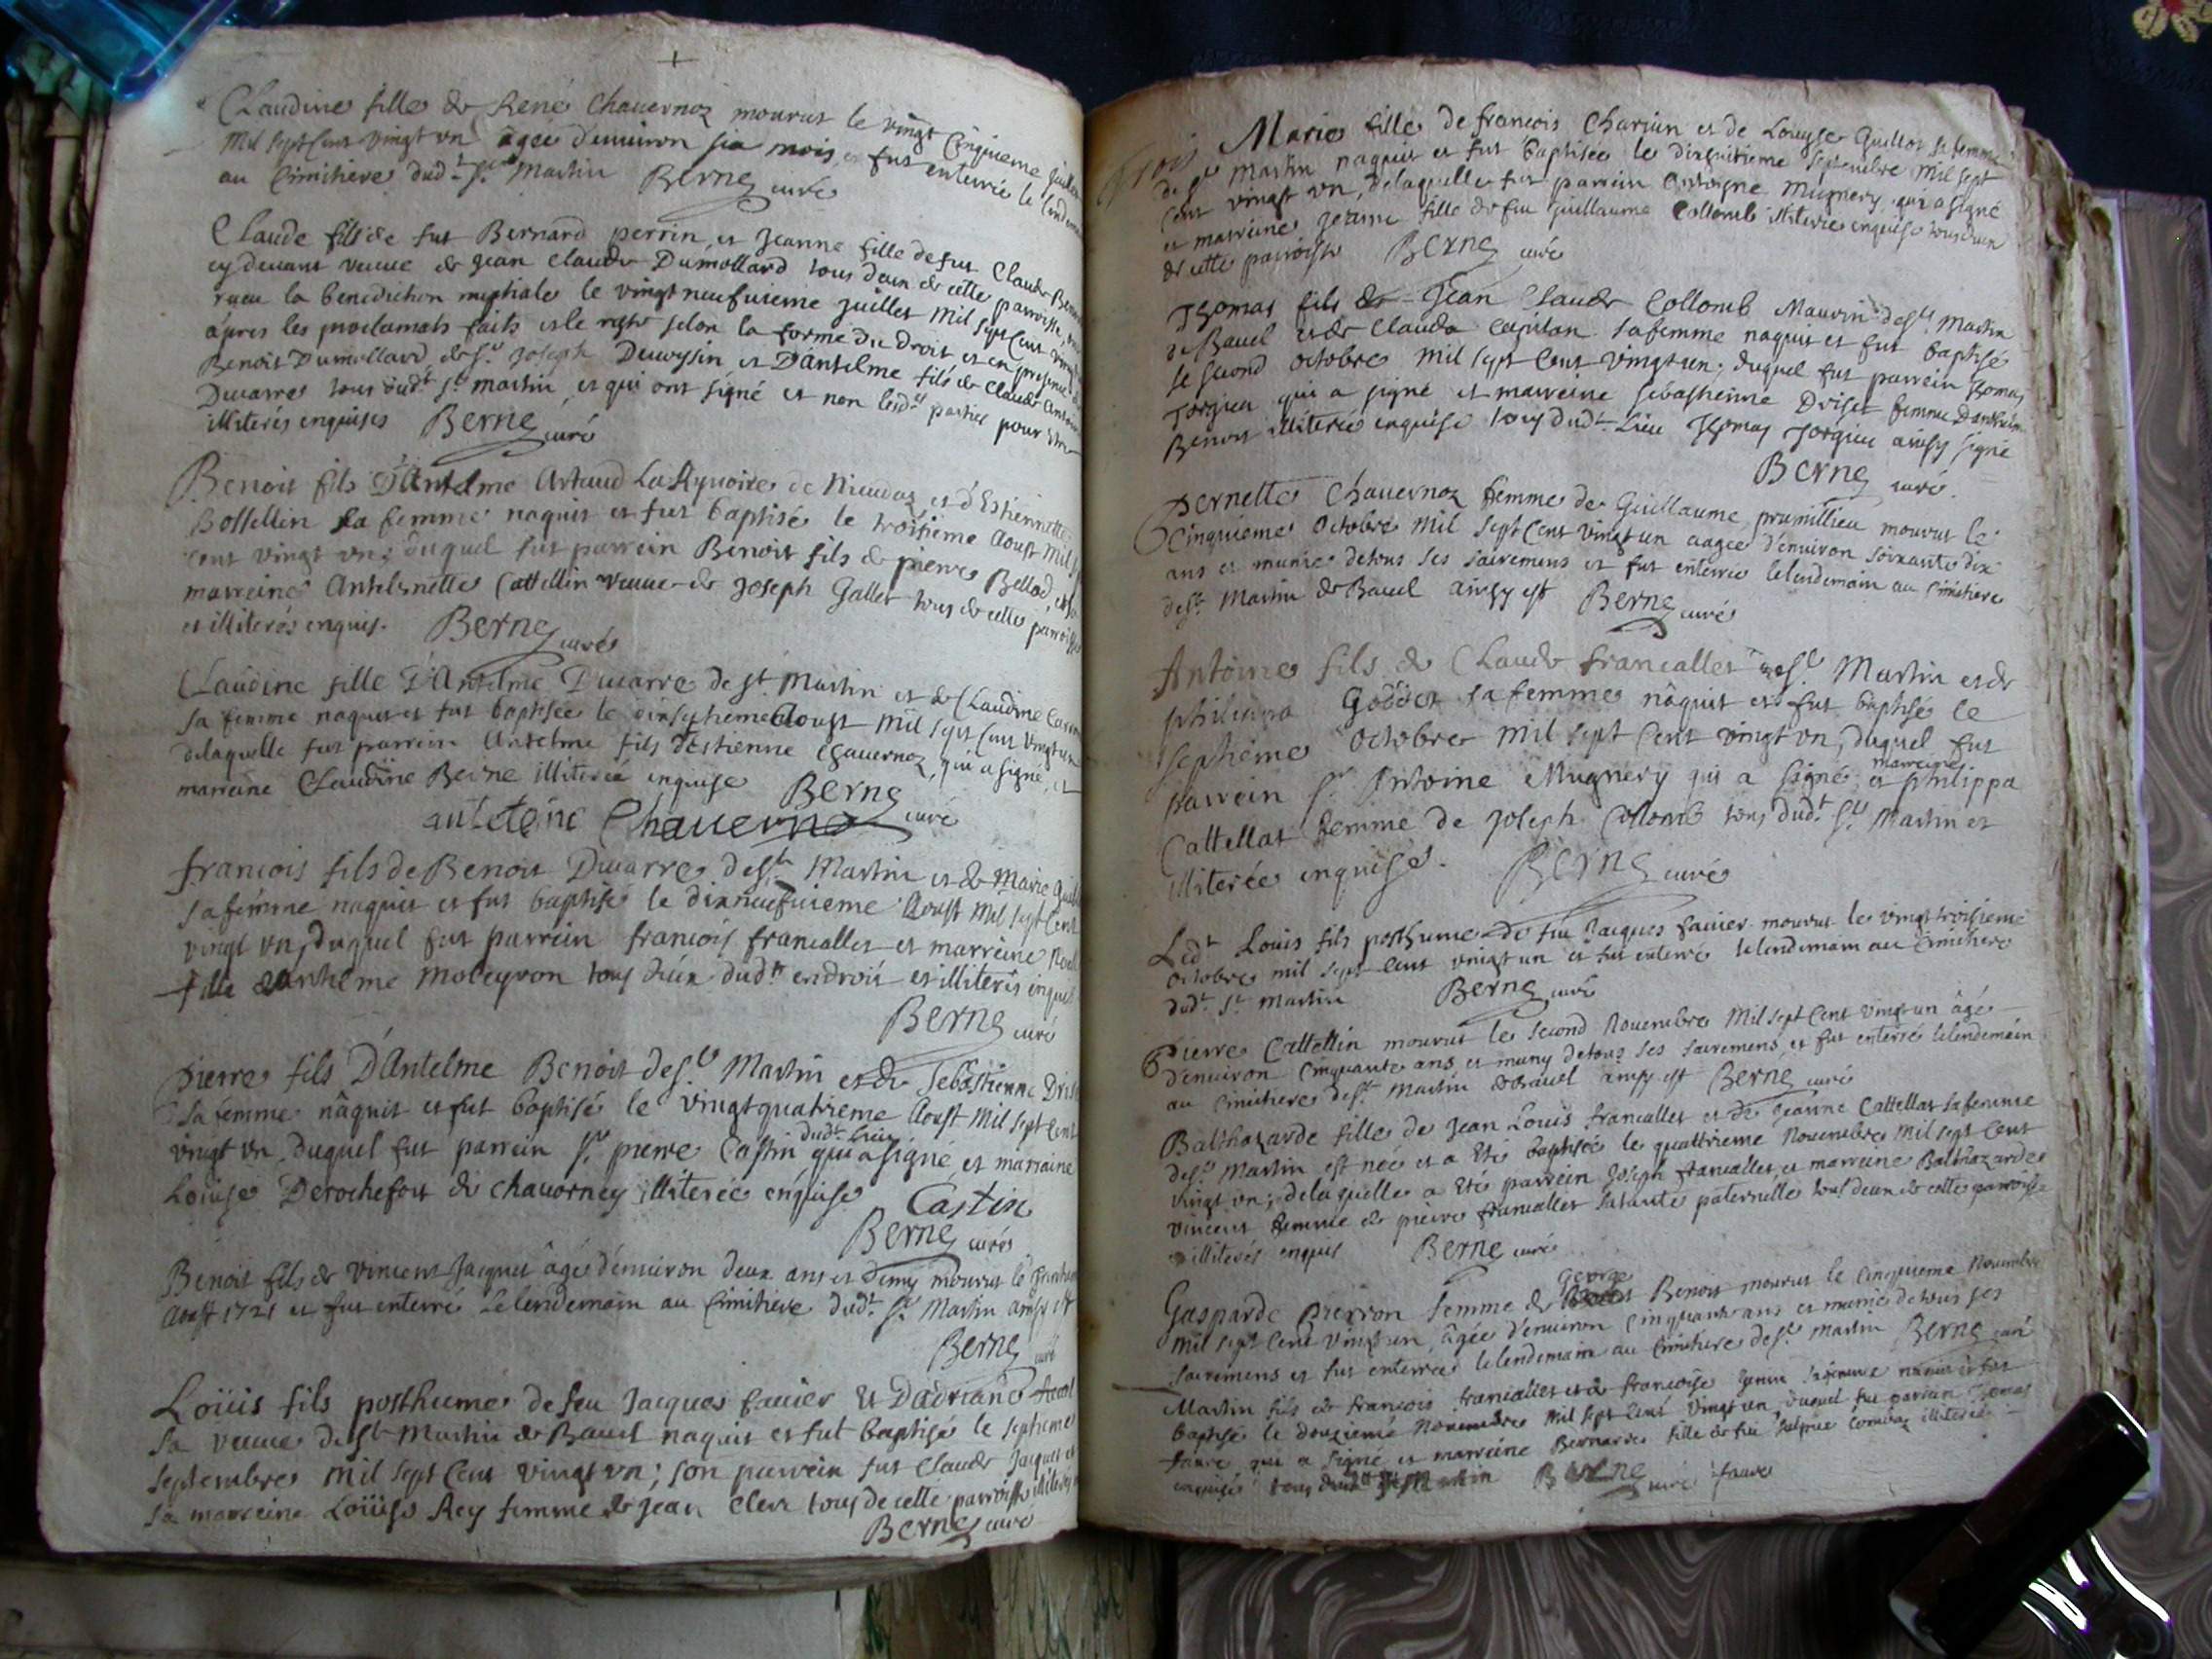 Claudine fille de René Chauernoz mourut le vingt cinquieme juillet
mil sept cent vingt vn âgée d'enuiron six mois et fut enterrée le lendem
au Cimitiere dud.t S.t Martin Berne curé
Claude fils de fut Bernard perrin, et Jeanne fille de fut Claude
cy deuant veuue de Jean Claude Dumollard tous deux de cette parroisse,
la benediction nuptiale le vingt neufuieme juillet mil sept cent vingt
apres les proclamats faits et le reste selon la forme du droit et en presence
Benoit Dumollard, de S.r Joseph Duuoysin et D'Antelme fils de Claude
Ducarre tous dud.t S.t martin, et qui ont signé et non lesd.es parties pour
illiterés enquises Berne curé
Benoit fils D'Antelme Artaud et d'Estiennette
Bottellin sa femme naquit et fut baptisé le troisieme Aoust mil
cent vingt vn; duquel fut parrein Benoit fils de pierre Bellod,
marreine Antelmette Cattellin veuue de Joseph Gallet tous de cette parroisse
et illiterés enquis. Berne curé
Claudine fille D'Antelme Ducarre de S.t Martin et de Claudine
sa femme naquit et fut baptisée le dixseptieme Aoust mil sept cent vingt un
delaquelle fut parrein Antelme fils d'Estienne Chauernoz, qui a signé, et
marreine Claudine Berne illiterée enquise Berne curé
Chauerno
francois fils de Benoit Ducarre de S.t Martin et de Marie
sa femme naquit et fut baptisé le dixneufuieme Aoust mil sept cent
vingt vn, duquel fut parrein francois francallet et marreine
fille d'antelme moleyron tous deux dud.t endroit et illiterés enquis
Berne curé
Pierre fils D'Antelme Benoit de S.t Martin et de Sebastienne
sa femme nâquit et fut baptisé le vingt quatrieme Aoust mil sept cent
dud.t lieu
vingt vn, duquel fut parrein S.r pierre Castin qui a signé et marraine
Louise Derochefort de chauornay illiterée enquise Castin
Berne curé
Benoit fils de vincent Jacquet âgé d'enuiron deux ans et demy mourut le
Aoust 1721 et fut enterré le lendemain au Cimitiere dud.t S.t Martin ainsy est
Berne curé
Loüis fils posthume de feu Jacques fauier Et D'adriane
sa veuue de S.t Martin de Bauel naquit et fut baptisé le septieme
septembre mil sept cent vingt vn; son parrein fut Claude Jacquet et
sa marreine Loüise Rey femme de Jean Clerc tous de cette parroisse illiterés
Berne curé
Marie fille de francois Charjun et de Louyse Guillot sa femme
de S.t Martin naquit et fut baptisée le dixhuitieme septembre mil sept
cent vingt vn, delaquelle fut parrein Anthoyne Mugnery, qui a signé
et marreine Jeanne fille de feu Guillaume Collomb illiterée enquise tous deux
de cette parroisse Berne curé
Thomas fils de Jean Claude Collomb Maurin de S.t Martin
de Bauel et de Clauda Capitan sa femme naquit et fut baptisé
le second octobre mil sept cent vingt un; duquel fut parrein Thomas
Jorgieu qui a signé et marreine Sebastienne Driset femme D'anthelme
Benoit illiterée enquise tous dud.t Lieu Thomas Jorgieu ainsy signé
Berne curé.
Pernette Chauernoz femme de Guillaume prumillieu mourut le
Cinquieme Octobre mil sept cent vingt un aagée d'enuiron soixante dix
ans et munie de tous ses sacremens et fut enterrée le lendemain au Cimitiere
de S.t Martin de Bauel ainsy est Berne curé
Antoine fils de Claude francallet de S.t Martin et de
philippa Godet sa femme nâquit et fut baptisé le
septieme Octobre mil sept cent vingt vn, duquel fut
marreine
parrein S.r Antoine Mugnery qui a signé et philippa
Cattellat femme de Joseph Collomb tous dud.t S.t Martin et
illiterée enquise. Berne curé
Led.t Louis fils posthume de feu Jacques fauier mourut le vingt troisieme
Octobre mil sept cent vingt un et fut enterré le lendemain au Cimitiere
dud.t S.t Martin Berne curé
Pierre Cattellin mourut le second Nouembre mil sept cent vingt un âgé
d'enuiron cinquante ans et muny de tous ses sacremens et fut enterré le lendemain
au Cimitiere de S.t Martin de Bauel ainsy est Berne curé
Balthazarde fille de Jean Louis francallet et de Jeanne Cattellat sa femme
de S.t Martin est née et a eté baptisée le quattrieme Nouembre mil sept cent
vingt vn; de laquelle a eté parrein Joseph francallet et marreine Balthazarde
vincent femme de pierre francallet sa tante paternelle tous deux de cette parroisse
illiterés enquis Berne curé
George
Gasparde Pierron femme de Benoit mourut le cinquieme Nouembre
mil sept cent vingt un, âgée d'enuiron cinquante ans et munie de tous ses
sacremens et fut enterrée le lendemain au Cimitiere de S.t Martin Berne curé
Martin fils de francois francallet et de francoise sa femme naquit et fut
baptisé le douzieme Nouembre mil sept cent vingt vn, duquel fut parrain Thomas
faure qui a signé et marreine Bernarde fille de feu illiterée
enquise tous dud.t S.t Martin Berne curé faure